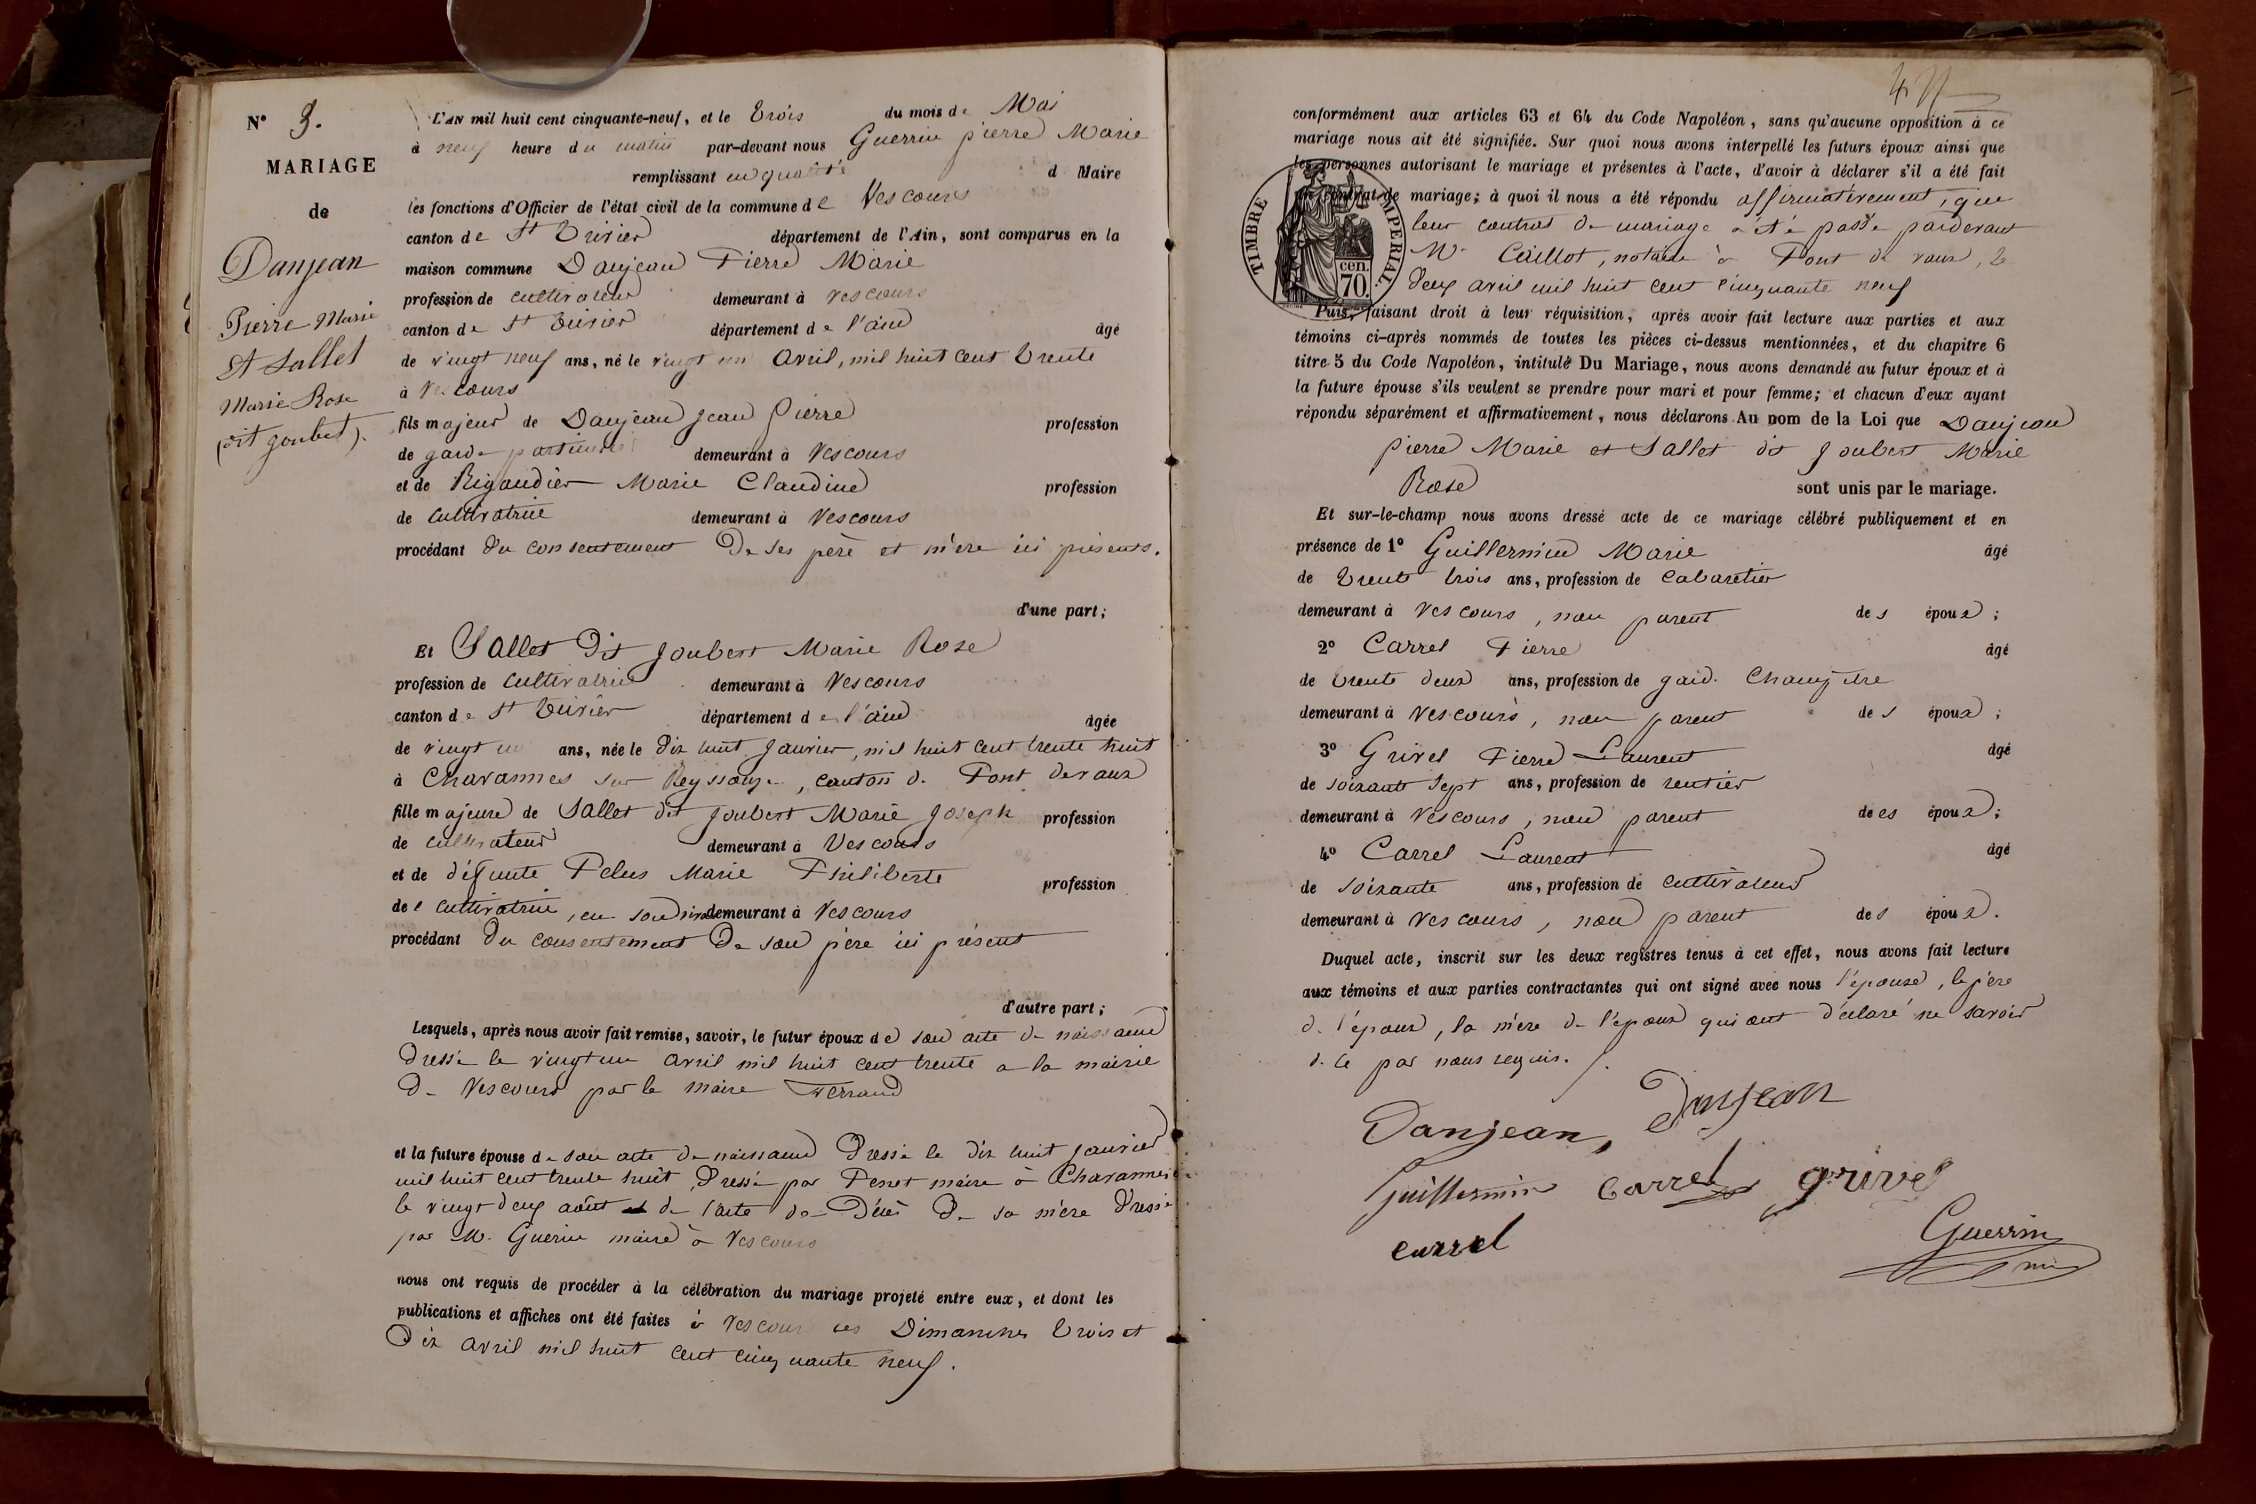 N° 3.
MARIAGE
de
Danjean
Pierre Marie
et Sallet
Marie Rose
(dit Joubert).
L'AN mil huit cent cinquante-neuf, et le trois du mois de Mai
à neuf heure du matin par-devant nous Guerrin pierre Marie
remplissant en qualité d Maire
les fonctions d'Officier de l'état civil de la commune de Vescours
canton de St Trivier département de l'Ain, sont comparus en la
maison commune Danjean Pierre Marie
profession de cultivateur demeurant à Vescours
canton de St Trivier département de l'ain âgé
de vingt neuf ans, né le vingt un avril, mil huit cent trente
à Vescours
fils majeur de Danjean Jean Pierre profession
de garde particulier demeurant à Vescours
et de Rigaudier Marie Claudine profession
de cultivatrice demeurant à Vescours
procédant du consentement de ses père et mère ici présents.
d'une part;
Et Sallet dit Joubert Marie Rose
profession de cultivatrice demeurant à Vescours
canton de St Trivier département de l'ain âgée
de vingt un ans, née le dix huit Janvier, mil huit cent trente huit
à Chavannes sur Reyssouze, canton de Pont devaux
fille majeure de Sallet dit Joubert Marie Joseph profession
de cultivateur demeurant à Vescours
et de défunte Pelus Marie Philiberte profession
de cultivatrice, en son vivant demeurant à Vescours
procédant du consentement de son père ici présent
d'autre part;
Lesquels, après nous avoir fait remise, savoir, le futur époux de son acte de naissance
dressé le vingt un avril mil huit cent trente a la mairie
de Vescours par le maire Ferrand
et la future épouse de son acte de naissance dressé le dix huit Janvier
mil huit cent trente huit, dressé par Penet maire à Chavannes
le vingt deux août et de l'acte de décès de sa mère dressé
par M. Guerin maire à Vescours
nous ont requis de procéder à la célébration du mariage projeté entre eux, et dont les
publications et affiches ont été faites à Vescours les Dimanches trois et
dix avril mil huit cent cinquante neuf.
conformément aux articles 63 et 64 du Code Napoléon, sans qu'aucune opposition à ce
mariage nous ait été signifiée. Sur quoi nous avons interpellé les futurs époux ainsi que
les personnes autorisant le mariage et présentes à l'acte, d'avoir à déclarer s'il a été fait
un contrat de mariage; à quoi il nous a été répondu affirmativement, que
leur contrat de mariage a été passé pardevant
Me Caillot, notaire à Pont de vaux, le
deux avril mil huit cent cinquante neuf
TIMBRE IMPERIAL
cen.
70.
Puis, faisant droit à leur réquisition, après avoir fait lecture aux parties et aux
témoins ci-après nommés de toutes les pièces ci-dessus mentionnées, et du chapitre 6
titre 5 du Code Napoléon, intitulé Du Mariage, nous avons demandé au futur époux et à
la future épouse s'ils veulent se prendre pour mari et pour femme; et chacun d'eux ayant
répondu séparément et affirmativement, nous déclarons Au nom de la Loi que Danjean
pierre Marie et Sallet dit Joubert Marie
Rose sont unis par le mariage.
Et sur-le-champ nous avons dressé acte de ce mariage célébré publiquement et en
présence de 1° Guillermin Marie âgé
de trente trois ans, profession de cabaretier
demeurant à Vescours, non parent des époux;
2° Carrel Pierre âgé
de trente deux ans, profession de garde champêtre
demeurant à Vescours, non parent des époux;
3° Grivel Pierre Laurent âgé
de soixante sept ans, profession de rentier
demeurant à Vescours, non parent des époux;
4° Carrel Laurent âgé
de soixante ans, profession de cultivateur
demeurant à Vescours, non parent des époux.
Duquel acte, inscrit sur les deux registres tenus à cet effet, nous avons fait lecture
aux témoins et aux parties contractantes qui ont signé avec nous l'épouse, le père
de l'époux, la mère de l'époux qui ont déclaré ne savoir
de ce par nous requis.
Danjean, Danjean
Guillermin Carrel grivel
carrel
Guerrin